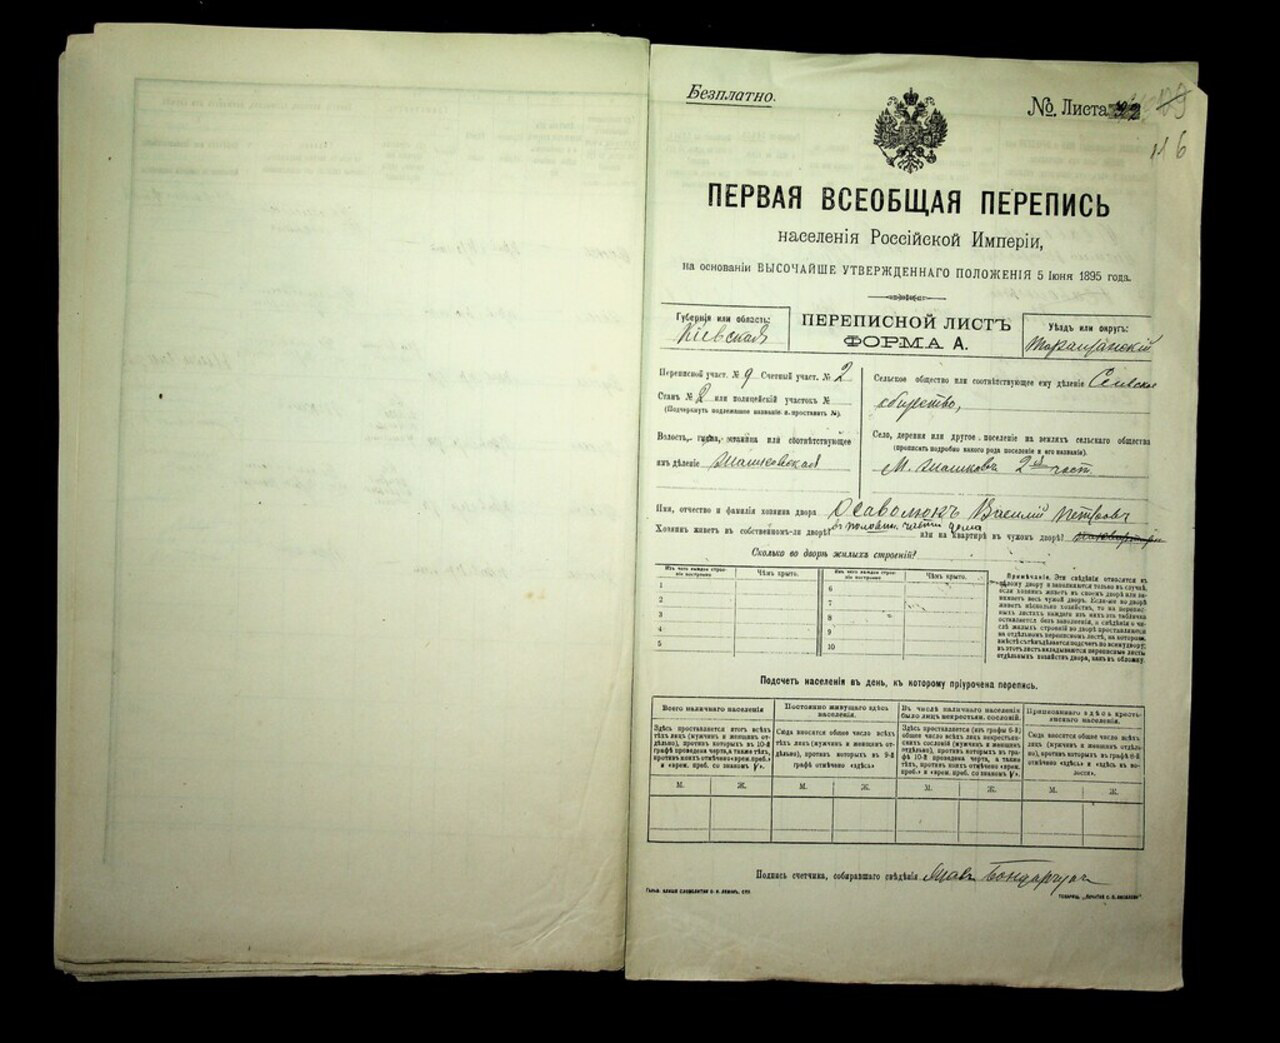 Безплатно.
№. Листа
116
ПЕРВАЯ ВСЕОБЩАЯ ПЕРЕПИСЬ
населенія Россійской Имперіи,
на основаніи ВЫСОЧАЙШЕ УТВЕРЖДЕННАГО ПОЛОЖЕНІЯ 5 Іюня 1895 года.
Губернія или область:
Кіевская
ПЕРЕПИСНОЙ ЛИСТЪ
ФОРМА А.
Уѣздъ или округъ:
Таращанскій
Переписной участ. № 9 Счетный участ. № 2
Станъ № 2 или полицейскій участокъ №
(Подчеркнуть подлежащее названіе и проставить №).
Волость, гмина, станица или соотвѣтствующее
имъ дѣленіе
Сельское общество или соотвѣтствующее ему дѣленіе
Село, деревня или другое поселеніе на земляхъ сельскаго общества
(прописать подробно какого рода поселеніе и его названіе).
М. 2ая част
Имя, отчество и фамилія хозяина двора Василій Петровъ
Хозяинъ живетъ въ собственномъ-ли дворѣ? въ части дома или на квартирѣ въ чужомъ дворѣ?
Сколько во дворѣ жилыхъ строеній?
Изъ чего каждое строеніе построено
Чѣмъ крыто.
Изъ чего каждое строеніе построено
Чѣмъ крыто.
1
2
3
4
5
6
7
8
9
10
Примѣчаніе. Эти свѣдѣнія относятся къ
цѣлому двору и заполняются только въ случаѣ,
если хозяинъ живетъ въ своемъ дворѣ или занимаетъ весь чужой дворъ. Если-же во дворѣ
живетъ нѣсколько хозяйствъ, то на переписныхъ листахъ каждаго изъ нихъ эта табличка
оставляется безъ заполненія, а свѣдѣнія о числѣ жилыхъ строеній во дворѣ проставляются
на отдѣльномъ переписномъ листѣ, на которомъ
вмѣстѣ съ тѣмъ дѣлается подсчетъ по всему двору;
въ этотъ листъ вкладываются переписные листы
отдѣльныхъ хозяйствъ двора, какъ въ обложку.
Подсчетъ населенія въ день, къ которому пріурочена перепись.
Всего наличнаго населенія
Здѣсь проставляется итогъ всѣхъ
тѣхъ лицъ (мужчинъ и женщинъ отдѣльно), противъ которыхъ въ 10-й
графѣ проведена черта, а также тѣхъ,
противъ коихъ отмѣчено «врем. преб.»
и «врем. преб. со знакомъ V».
Постоянно живущаго здѣсь
населенія.
Сюда вносится общее число всѣхъ
тѣхъ лицъ (мужчинъ и женщинъ отдѣльно), противъ которыхъ въ 9-й
графѣ отмѣчено «здѣсь»
Въ числѣ наличнаго населенія
было лицъ некрестьян. сословій.
Здѣсь проставляется (изъ графы 6-й)
общее число всѣхъ лицъ некрестьянскихъ сословій (мужчинъ и женщинъ
отдѣльно), противъ которыхъ въ графѣ 10-й проведена черта, а также
тѣхъ, противъ коихъ отмѣчено «врем.
преб.» и «врем. преб. со знакомъ V».
Приписаннаго здѣсь крестьянскаго населенія.
Сюда вносится общее число всѣхъ
лицъ (мужчинъ и женщинъ отдѣльно), противъ которыхъ въ графѣ 8-й
отмѣчено «здѣсь» и «здѣсь въ волости».
М. Ж. М. Ж. М. Ж. М. Ж.
Подпись счетчика, собиравшаго свѣдѣнія